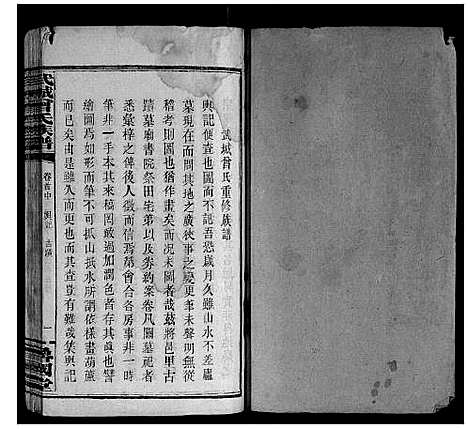 武城曾氏重修族譜
輿記便查也圖而不記吾恐歲月久雖山水不差廬
墓現在而問其地之廣狹事之變更茫未聲明無從
稽考則圖也猶作畫矣而況未圖者哉茲將邑里古
蹟墓廟書院祭田宅第以及券約案卷凡關墓祀者
悉彙梓之俾後人徵而信焉第會合各房事非一時
筆非一手本其來稿罔敢過加潤色者存其真也譬
繪圖為如形而筆不可抓山抵水所謂依樣畫葫蘆
而已矣由是雖久而更也而其查豈有難哉集輿記
武城曾氏族譜
卷首中
輿記
古蹟
一